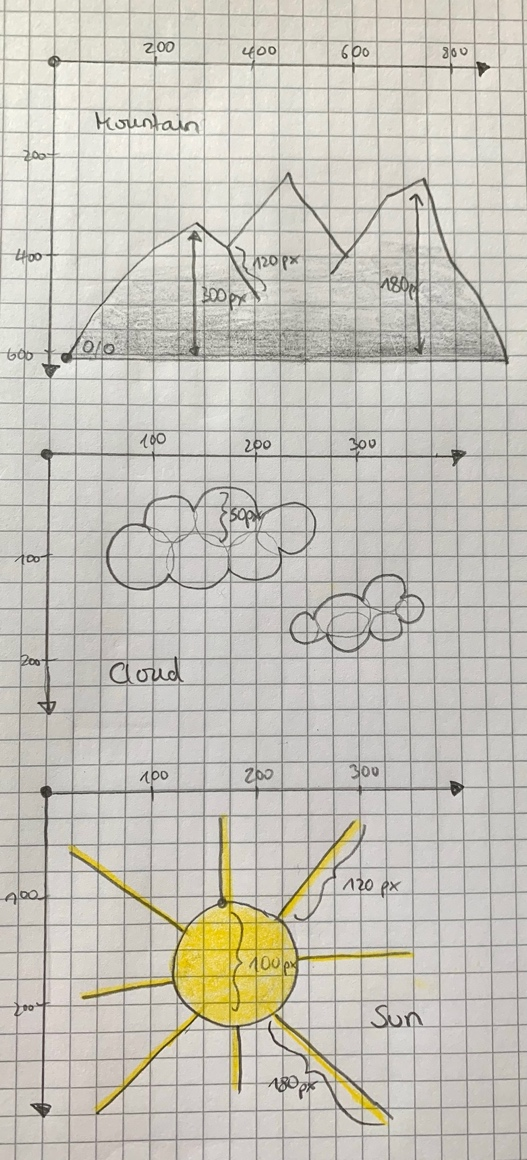 200 400 600 800
Mountain
200
400
120 px
300px
180px
600
0/0
100 200 300
50px
100
200
Cloud
100 200 300
100
120 px
100px
200
Sun
180px